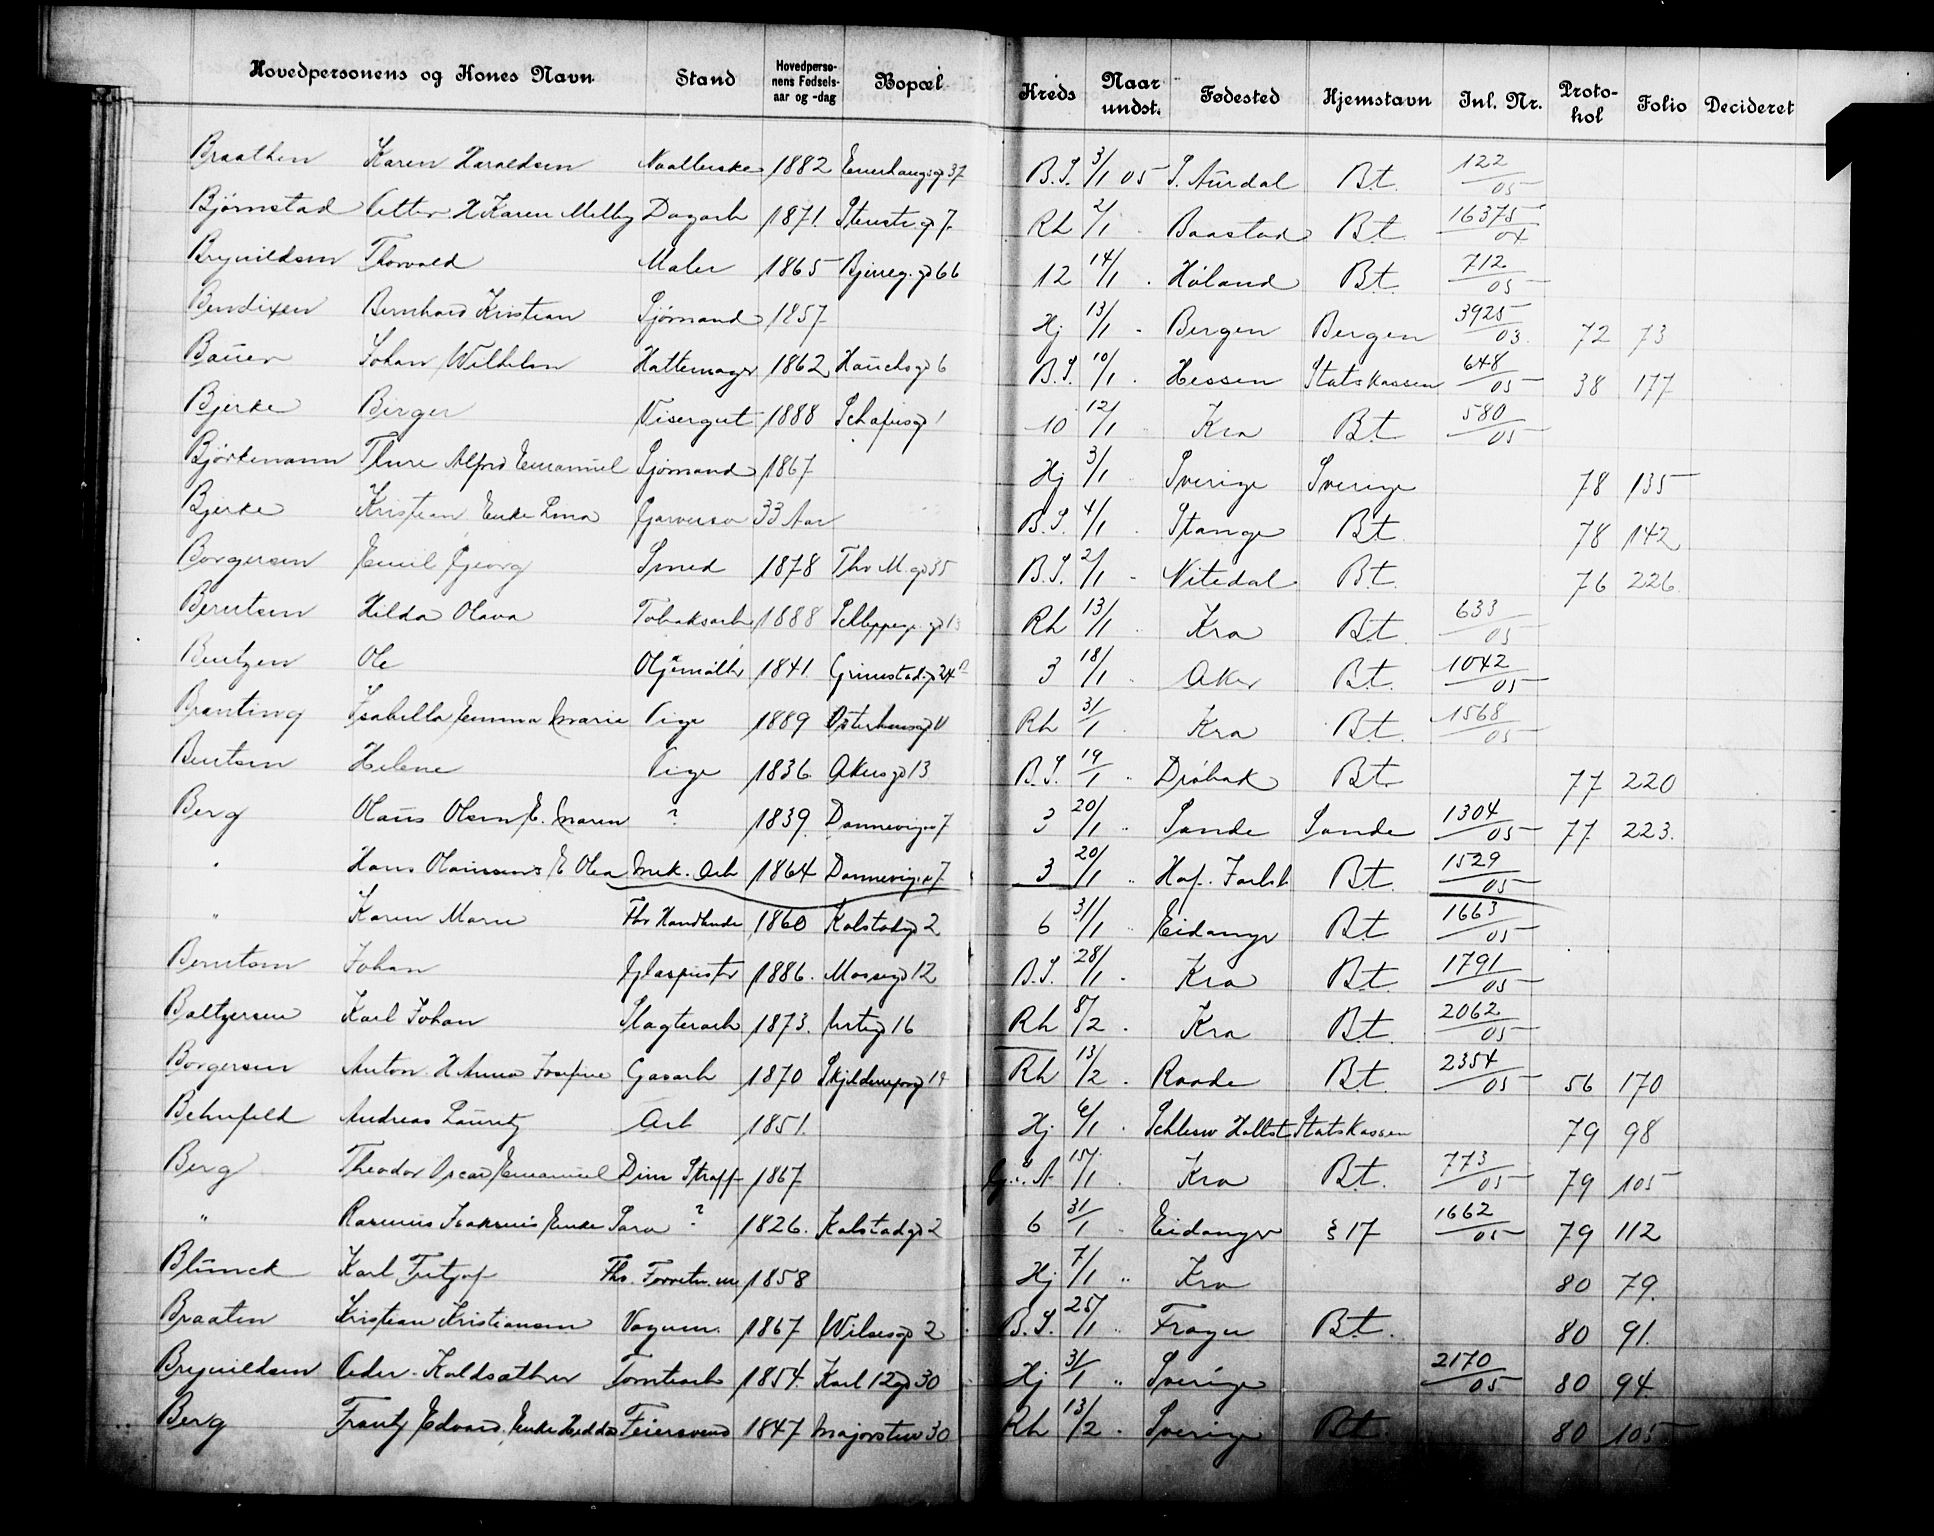 Hovedpersonens og Kones Navn Stand Hovedperso-nens Fødsels-aar og -dag Bopæl Kreds Naar undst. Fødested Hjemstavn Inl. Nr. Proto-kol Folio Decideret
Braathen Karen Haraldsen 1882 37 B.S. 3/1 05 S. Aurdal Bt. 122/05
Bjørnstad Karen Melby Dagarb 1871. Stenstr gd 7. Rh 2/1 Baastad Bt. 16375/04
Brynildsen Thorvald Maler 1865 gd 66 12 14/1 Høland Bt. 712/05
Bendixen Bernhard Kristian Sjømand 1857 Hj 13/1 Bergen Bergen 3925/03. 72 73
Bauer Johan Wilhelm Hattemager 1862 Hauchsgd 6 B.S. 10/1 Hessen Statskassen 648/05 38 177
Bjerke Birger Visergut 1888 1 10 12/1 Kra Bt 580/05
Björkemann Thure Alfred Emanuel Sjømand 1867 Hj 3/1 Sverige Sverige 78 135
Bjerke Kristian Enke Lina 33 Aar B.S. 4/1 Stange Bt. 78 142
Borgersen Emil Georg Smed 1878 Thv M. gd 35 B.S. 2/1 Nitedal Bt. 76 226
Berntsen Hilda Olava Tobaksarb 1888 Rh 13/1 Kra Bt. 633/05
Bentzen Ole 1841. Grimstadgd 3 18/1 Aker Bt. 1042/05
Branting Isabella Emma Marie Pige 1889 Østerhausgd 11 Rh 31/1 Kra Bt. 1568/05
Bentsen Helene Pige 1836 Akersgd 13 B.S. 19/1 " Drøbak Bt. 77 220
Berg Olaus Olsen E. Maren ? 1839. Dannevigsv 7 3 20/1 " Sande Sande 1304/05 77 223.
" Hans E Olea Mek. Arb 1864 Dannevigsv 7 3 20/1 " Hof. Jarlsb Bt. 1529/05
" Karen Marie Fhv 1860 Kalstadgd 2 6 31/1 " Eidanger Bt. 1663/05
Berntsen Johan Glaspuster 1886. Mossegd 12 B.S. 28/1 Kra Bt. 1791/05
Baltzersen Karl Johan Slagterarb 1873. Urtegd 16 Rh 8/2 Kra Bt. 2062/05
Borgersen Anton. H Anna Josefine Gasarb 1870 Rh 13/2 Raade Bt. 2354/05 56 170
Behnfeld Andreas Lauritz Arb 1851. Hj 6/1 Schlesw Holst Statskassen 79 98
Berg Theodor Oscar Emanuel Dim Straff 1867 15/1 Kra Bt. 773/05 79 105
" Rasmus Isaksens Enke Sara ? 1826. Kalstadgd 2 6 31/1 " Eidanger § 17 1662/05 79 112
Blunck Karl Fritjof Fhv. 1858 Hj 7/1 " Kra 80 79.
Braaten Kristian Kristiansen Vognm. 1867 Wilsesgd 2 B.S. 25/1 " Bt. 80 91.
Brynildsen Peder Tomtearb 1854. Karl 12 gd 30 Hj 31/1 " Sverige 2170/05 80 94
Berg Frantz Edvard, Enke Hedda Feiersvend 1847 Majorstuv 30 Rh 13/2 Sverige Bt. 80 105